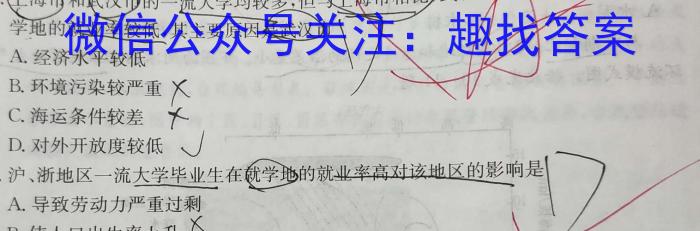 上海市和武汉市的一流大学均较多,但与上海市相比,
学地的就业率较低,其主要原因是武汉市
微信公众号关注:趣找答案
A. 经济水平较低
B. 环境污染较严重
C. 海运条件较差
D. 对外开放度较低
沪、浙地区一流大学毕业生在就学地的就业率高对该地区的影响是
D
A. 导致劳动力严重过剩